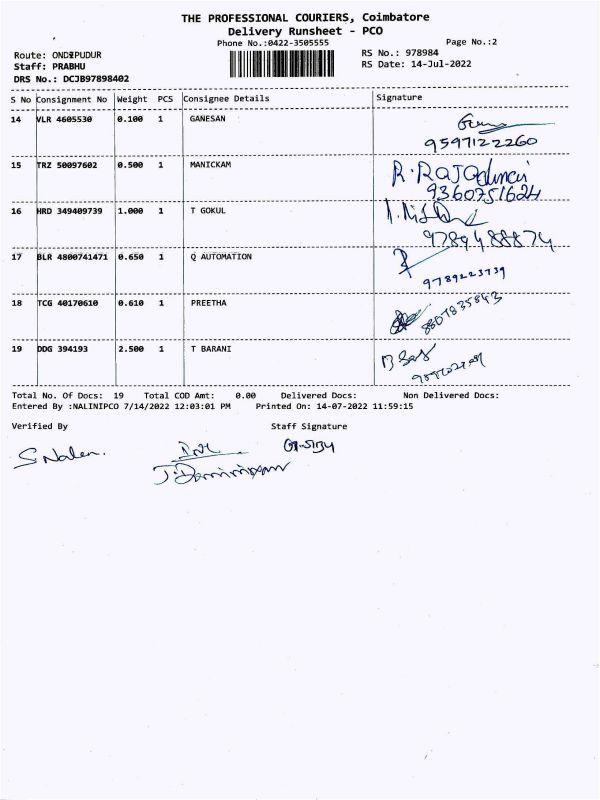 THE PROFESSIONAL COURIERS, Coimbatore
Delivery Runsheet - PCO
Phone No.:0422-3505555
Page No.:2
Route: ONDIPUDUR
RS No.: 978984
Staff: PRABHU
RS Date: 14-Jul-2022
DRS No.: DCJB97898402
S No Consignment No Weight PCS Consignee Details Signature
14 VLR 4605530 0.100 1 GANESAN
9597122260
15 TRZ 50097602 0.500 1 MANICKAM
9360751624
16 HRD 349409739 1.000 1 T GOKUL
9789488874
17 BLR 4800741471 0.650 1 Q AUTOMATION
9789223739
18 TCG 40170610 0.610 1 PREETHA
8807835843
19 DDG 394193 2.500 1 T BARANI
Total No. Of Docs: 19 Total COD Amt: 0.00 Delivered Docs: Non Delivered Docs:
Entered By :NALINIPCO 7/14/2022 12:03:01 PM Printed On: 14-07-2022 11:59:15
Verified By Staff Signature